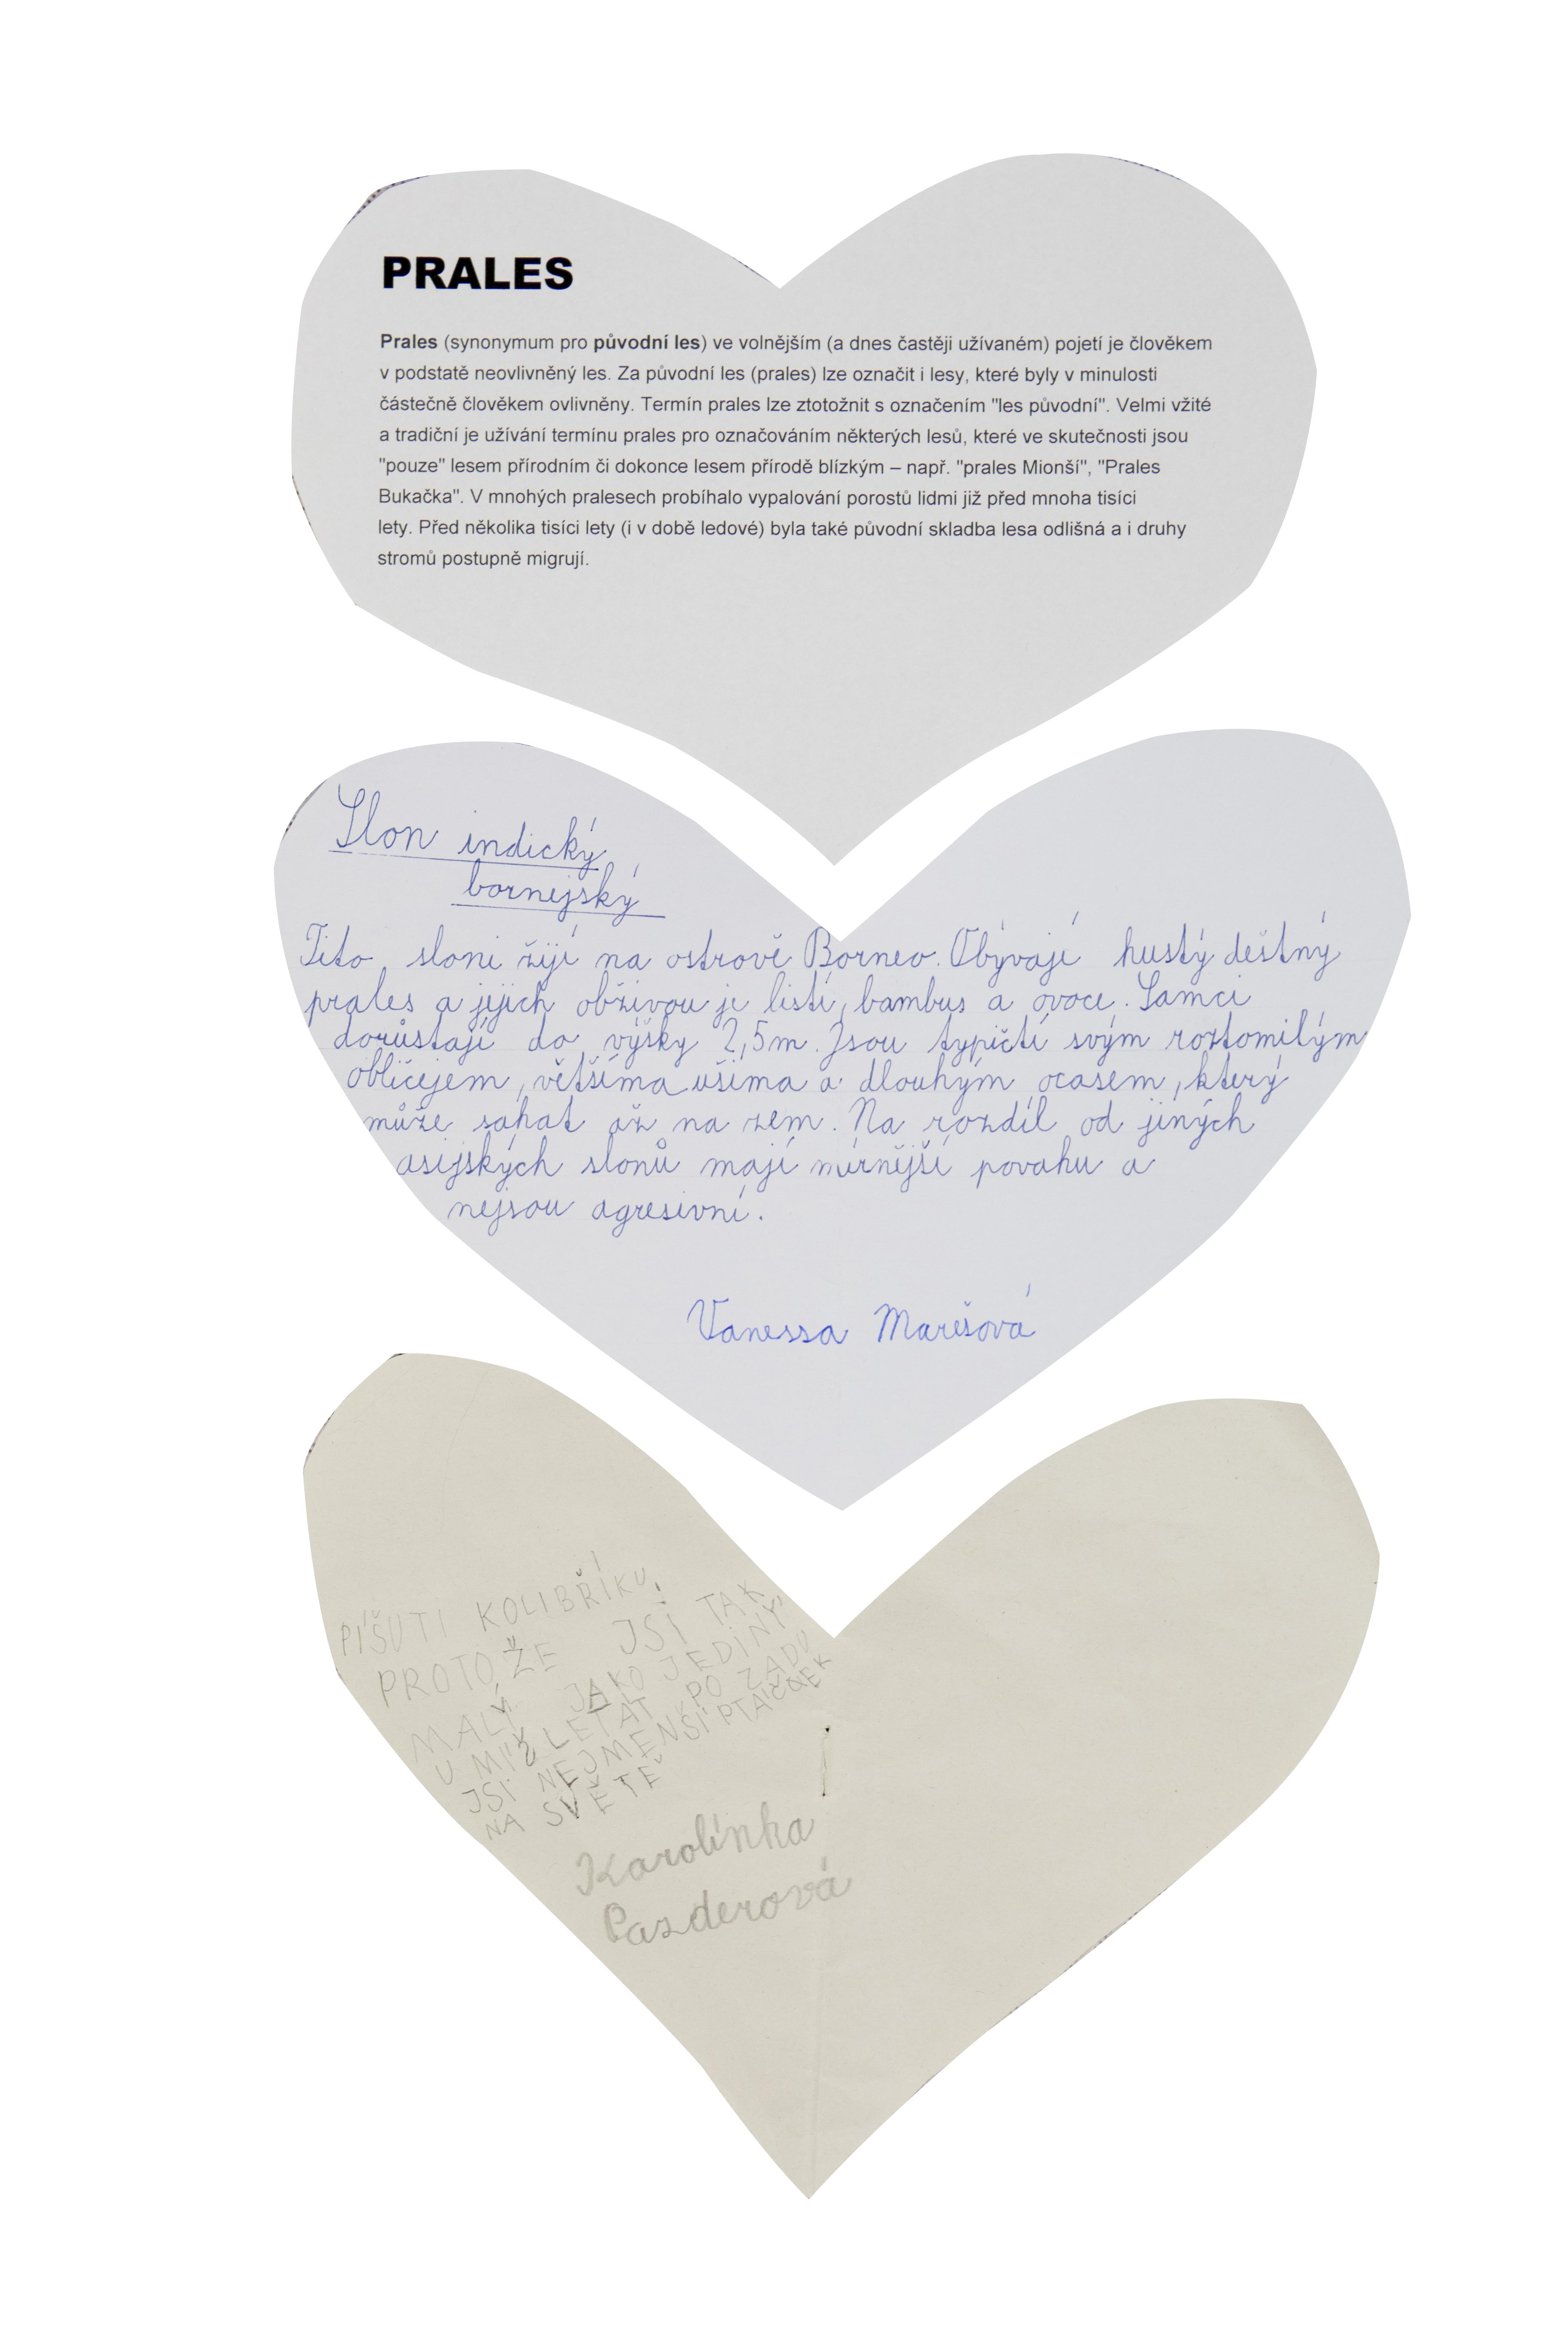 PRALES
Prales (synonymum pro původní les) ve volnějším (a dnes častěji užívaném) pojetí je člověkem
v podstatě neovlivněný les. Za původní les (prales) lze označit i lesy, které byly v minulosti
částečně člověkem ovlivněny. Termín prales lze ztotožnit s označením "les původní". Velmi vžité
a tradiční je užívání termínu prales pro označováním některých lesů, které ve skutečnosti jsou
"pouze" lesem přírodním či dokonce lesem přírodě blízkým – např. "prales Mionší", "Prales
Bukačka". V mnohých pralesech probíhalo vypalování porostů lidmi již před mnoha tisíci
lety. Před několika tisíci lety (i v době ledové) byla také původní skladba lesa odlišná a i druhy
stromů postupně migrují.
Slon indický
bornejský
Tito sloni žijí na ostrově Borneo. Obývají hustý deštný
prales a jejich obživou je listí, bambus a ovoce. Samci
dorůstají do výšky 2,5m. Jsou typičtí svým roztomilým
obličejem, většíma ušima a dlouhým ocasem, který
může sahat až na zem. Na rozdíl od jiných
asijských slonů mají mírnější povahu a
nejsou agresivní.
Vanessa Marešová
PÍŠUTI KOLIBŘÍKU,
PROTOŽE JSI TAK
MALÝ JAKO JEDINÝ
UMÍŠ LÉTAT PO ZADU
JSI NEJMENŠÍ PTÁČEK
NA SVĚTĚ
Karolínka
Pazderová